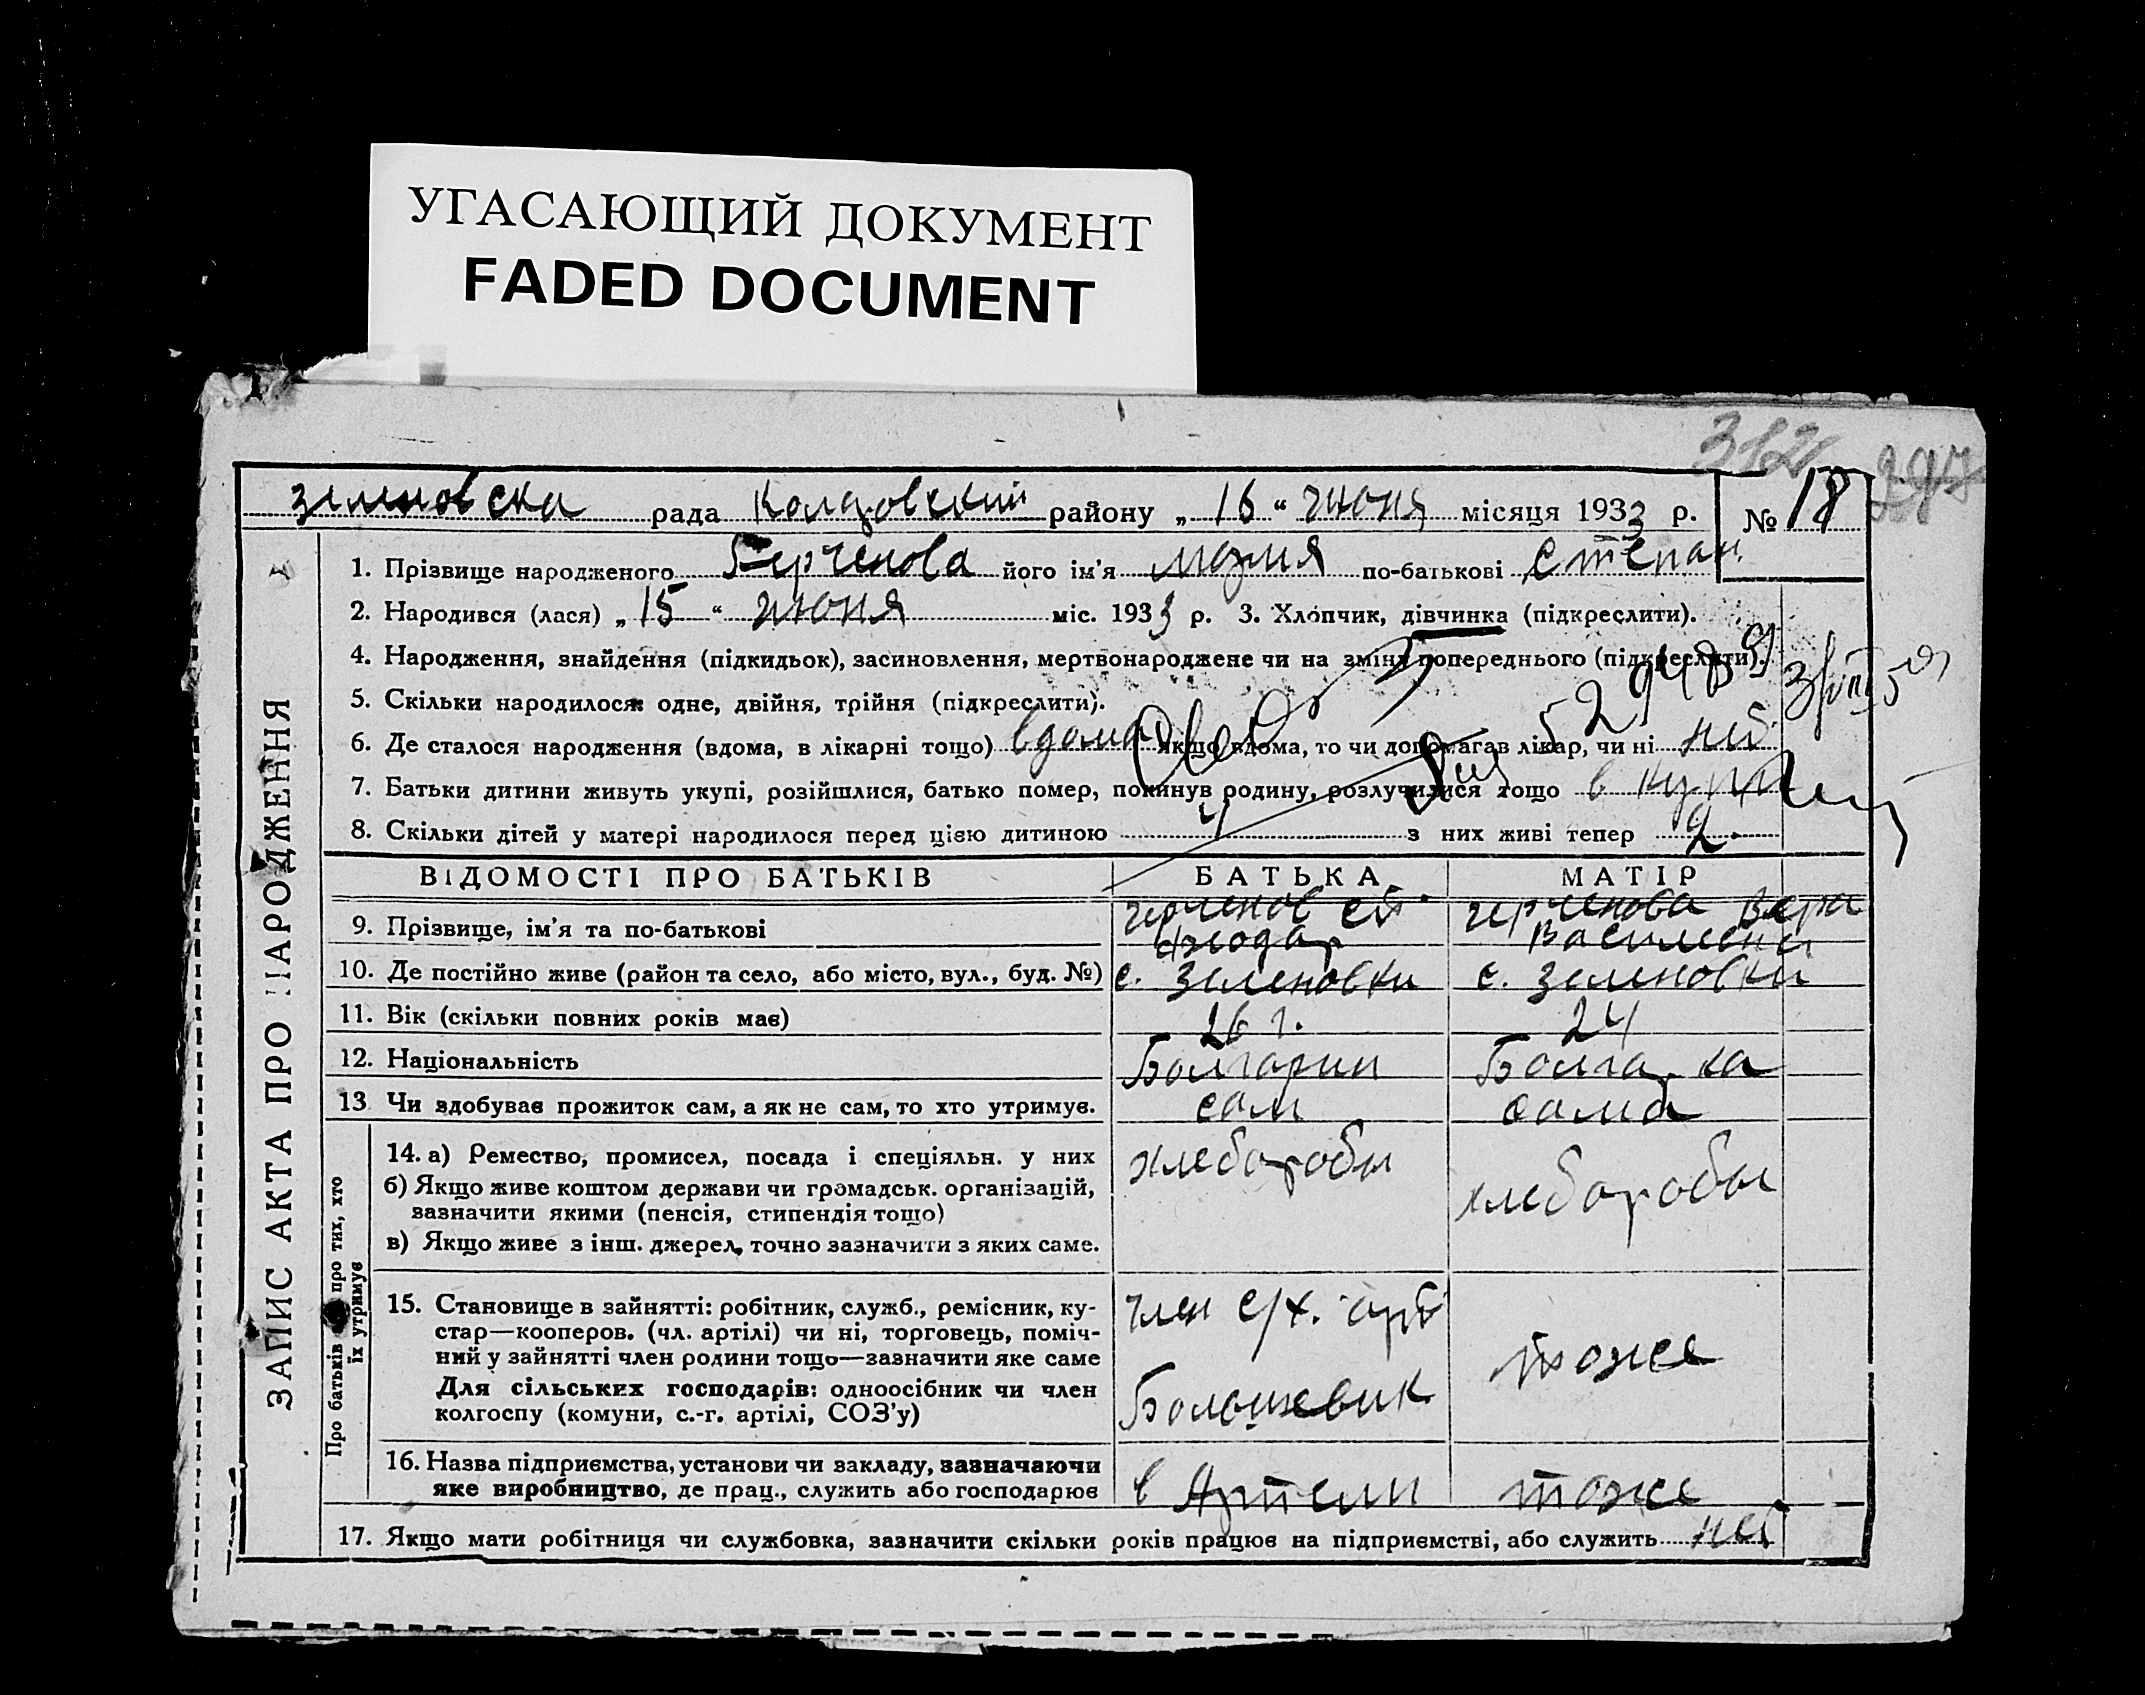 УГАСАЮЩИЙ ДОКУМЕНТ
FADED DOCUMENT
312
№ 18
рада района „ 16 “ июня місяця 1933 р.
ЗАПИС АКТА ПРО НАРОДЖЕННЯ
1. Прізвище народженого його ім'я по-батькові Степан.
2. Народився (лася) „ 15 “ июня міс. 1933 р. 3. Хлопчик, дівчинка (підкреслити).
4. Народження, знайдення (підкидьок), засиновлення, мертвонароджене чи на зміну попереднього (підкреслити).
5. Скільки народилося: одне, двійня, трійня (підкреслити).
6. Де сталося народження (вдома, в лікарні тощо) вдома якщо вдома, то чи допомагав лікар, чи ні нет
7. Батьки дитини живуть укупі, розійшлися, батько помер, покинув родину, розлучилися тощо в купе
8. Скільки дітей у матері народилося перед цією дитиною 4 з них живі тепер 2
ВІДОМОСТІ ПРО БАТЬКІВ БАТЬКА МАТІР
9. Прізвище, ім'я та по-батькові Герченов Ст Герченова Вера Василевна
10. Де постійно живе (район та село, або місто, вул., буд. №) с. Зеленовки с. Зеленовки
11. Вік (скільки повних років має) 26 г. 24
12. Національність Болгарин Болгарка
13 Чи здобуває прожиток сам, а як не сам, то хто утримує. сам сама
Про батьків про тих, хто їх утримує
14. а) Ремество, промисел, посада і спеціяльн. у них хлеборобы хлеборобы
б) Якщо живе коштом держави чи громадськ. організацій,
зазначити якими (пенсія, стипендія тощо)
в) Якщо живе з інш. джерел, точно зазначити з яких саме.
15. Становище в зайнятті: робітник, служб., ремісник, ку- член с/х. арт
стар—кооперов. (чл. артілі) чи ні, торговець, поміч-
ний у зайнятті член родини тощо—зазначити яке саме тоже
Для сільських господарів: одноосібник чи член Большевик
колгоспу (комуни, с.-г. артілі, СОЗ'у)
16. Назва підприємства, установи чи закладу, зазначаючи
яке виробництво, де прац., служить або господарює в Артели тоже
17. Якщо мати робітниця чи службовка, зазначити скільки років працює на підприємстві, або служить нет